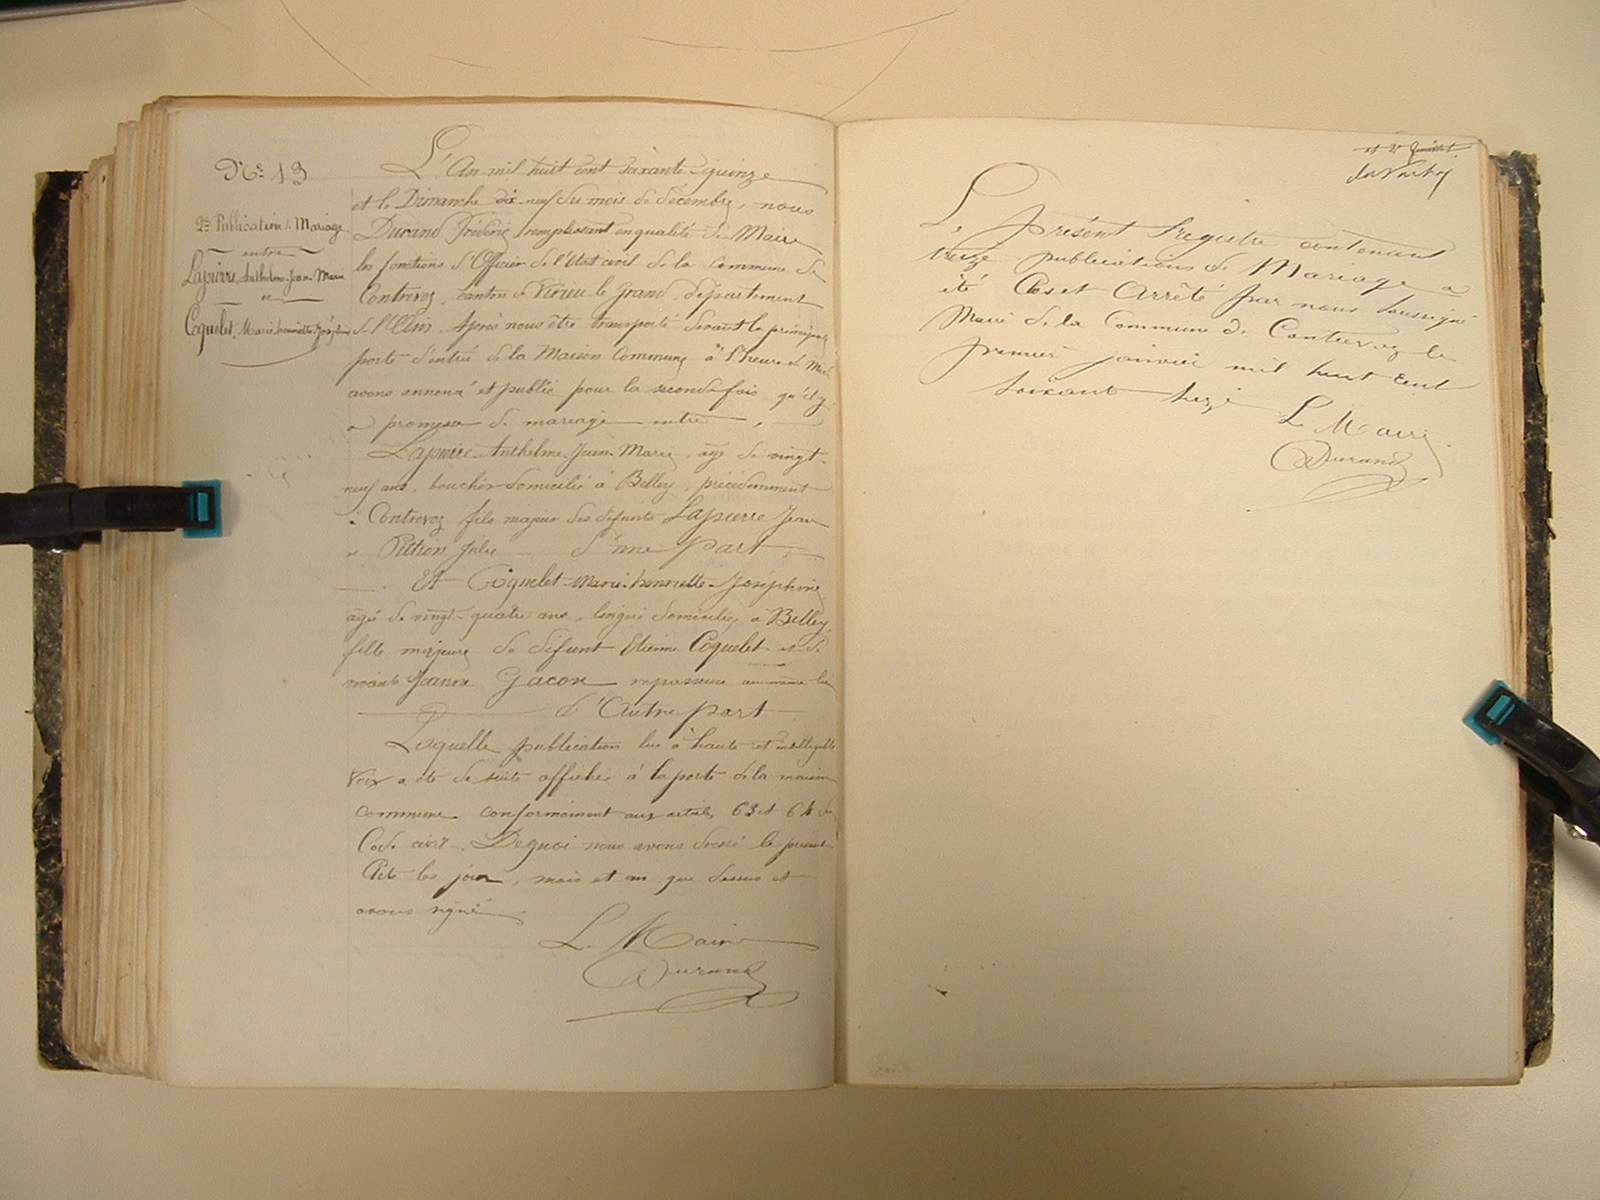 N° 13
2e Publication de Mariage
entre
Lapierre, Anthelme Jean Marie
et
Coquelet, Marie henriette Joséphine
L'An mil huit cent soixante quinze
et le Dimanche dix neuf du mois de décembre, nous
Durand Frédéric remplissant en qualité de Maire
les fonctions d'Officier de l'Etat civil de la Commune de
Contrevoz, canton de Virieu le grand département
de l'Ain. Après nous être transporté devant la principale
porte d'entrée de la Maison Commune à l'heure de Midi
avons annoncé et publié pour la seconde fois qu'il y
a promesse de mariage entre,
Lapierre Anthelme Jean Marie, âgé de vingt-
neuf ans, boucher domicilié à Belley, précédemment
à Contrevoz fils majeur des défunts Lapierre Jean
et Pittion Julie d'une part,
Et Coquelet Marie henriette Joséphine
âgée de vingt quatre ans, lingère domiciliée à Belley,
fille majeure de défunt Etienne Coquelet et de
vivante Jeanne Gacon repasseuse au même lieu
d'Autre part
Laquelle publication lue à haute et intelligible
voix a été de suite affichée à la porte de la maison
commune conformément aux articles 63 et 64 du
Code civil. De quoi nous avons dressé le présent
Acte les jour, mois et an que dessus et
avons signé
Le Maire
Durand
et 2e feuillet
Le présent Registre contenant
treize publications de Mariage a
été Clos et Arrêté par nous soussigné
Maire de la Commune de Contrevoz le
premier janvier mil huit cent
soixante seize
Le Maire
Durand